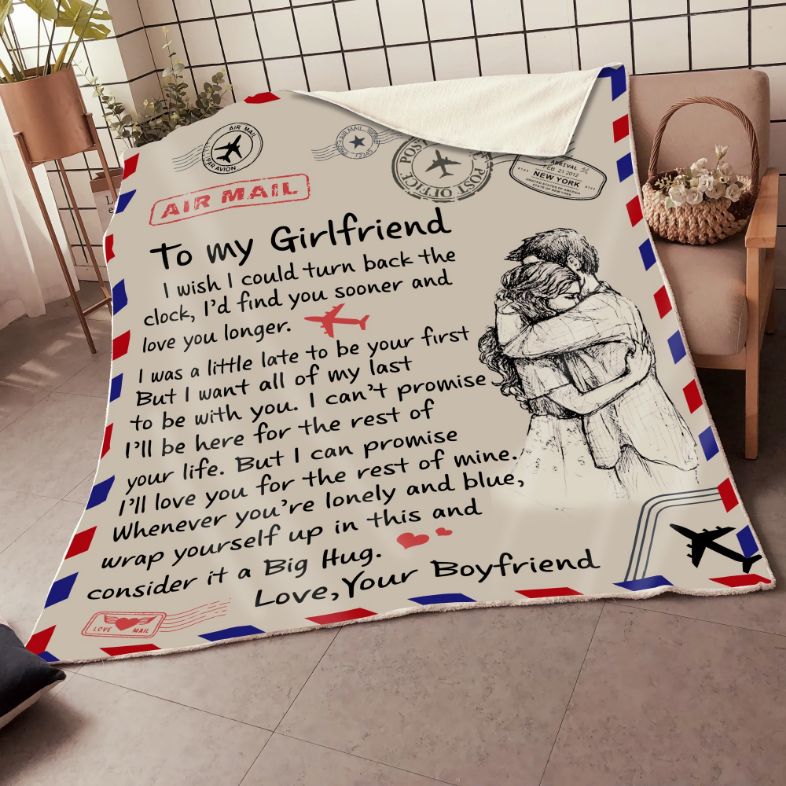 AIR MAIL
PAR AVION
AIR MAIL
POST OFFICE
ARRIVAL
NEW YORK
AIR MAIL
To my Girlfriend
I wish I could turn back the
clock, I'd find you sooner and
love you longer.
I was a little late to be your first
But I want all of my last
to be with you. I can't promise
I'll be here for the rest of
your life. But I can promise
I'll love you for the rest of mine.
Whenever you're lonely and blue,
wrap yourself up in this and
consider it a Big Hug.
Love,Your Boyfriend
LOVE MAIL